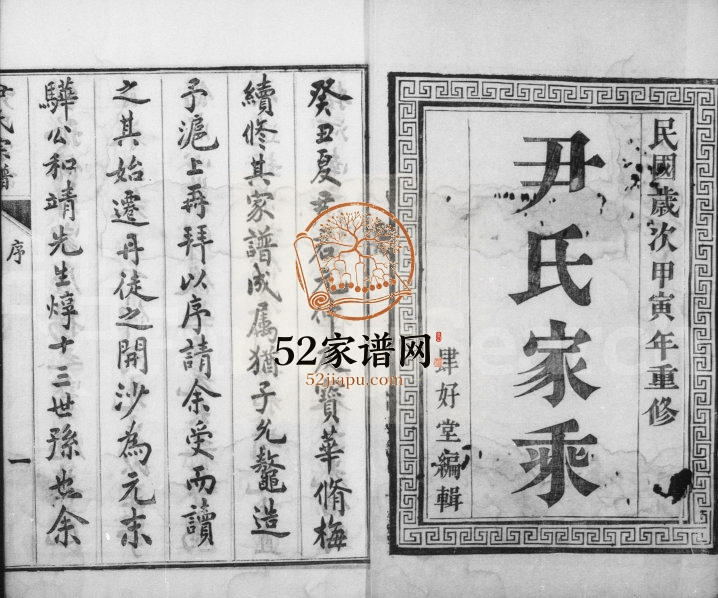 民國歲次甲寅年重修
尹氏家乘
肆好堂編輯
癸丑夏尹君寶華脩梅
續修其家譜成属猶子允鼇造
予滬上再拜以序請余受而讀
之其始遷丹徒之開沙為元末
驊公和靖先生焞十三世孫也余
氏宗譜
序
一
52家谱网
52jiapu.com